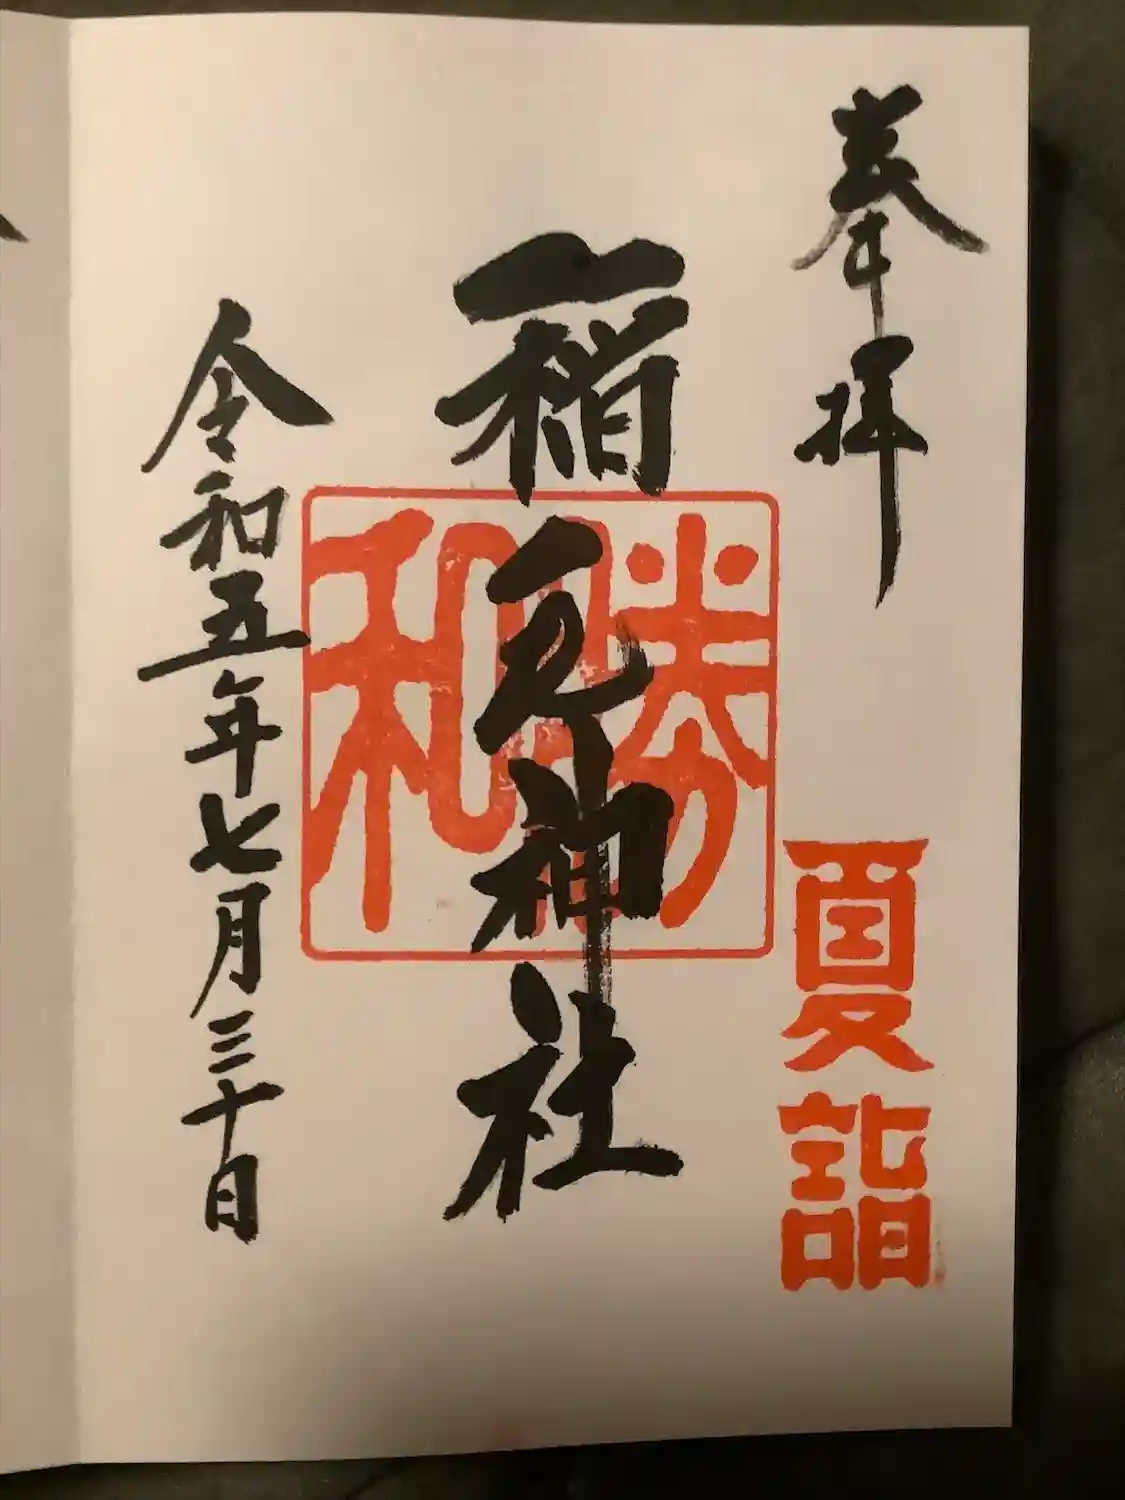 奉拝
夏詣
稲毛神社
勝和
令和五年七月三十日